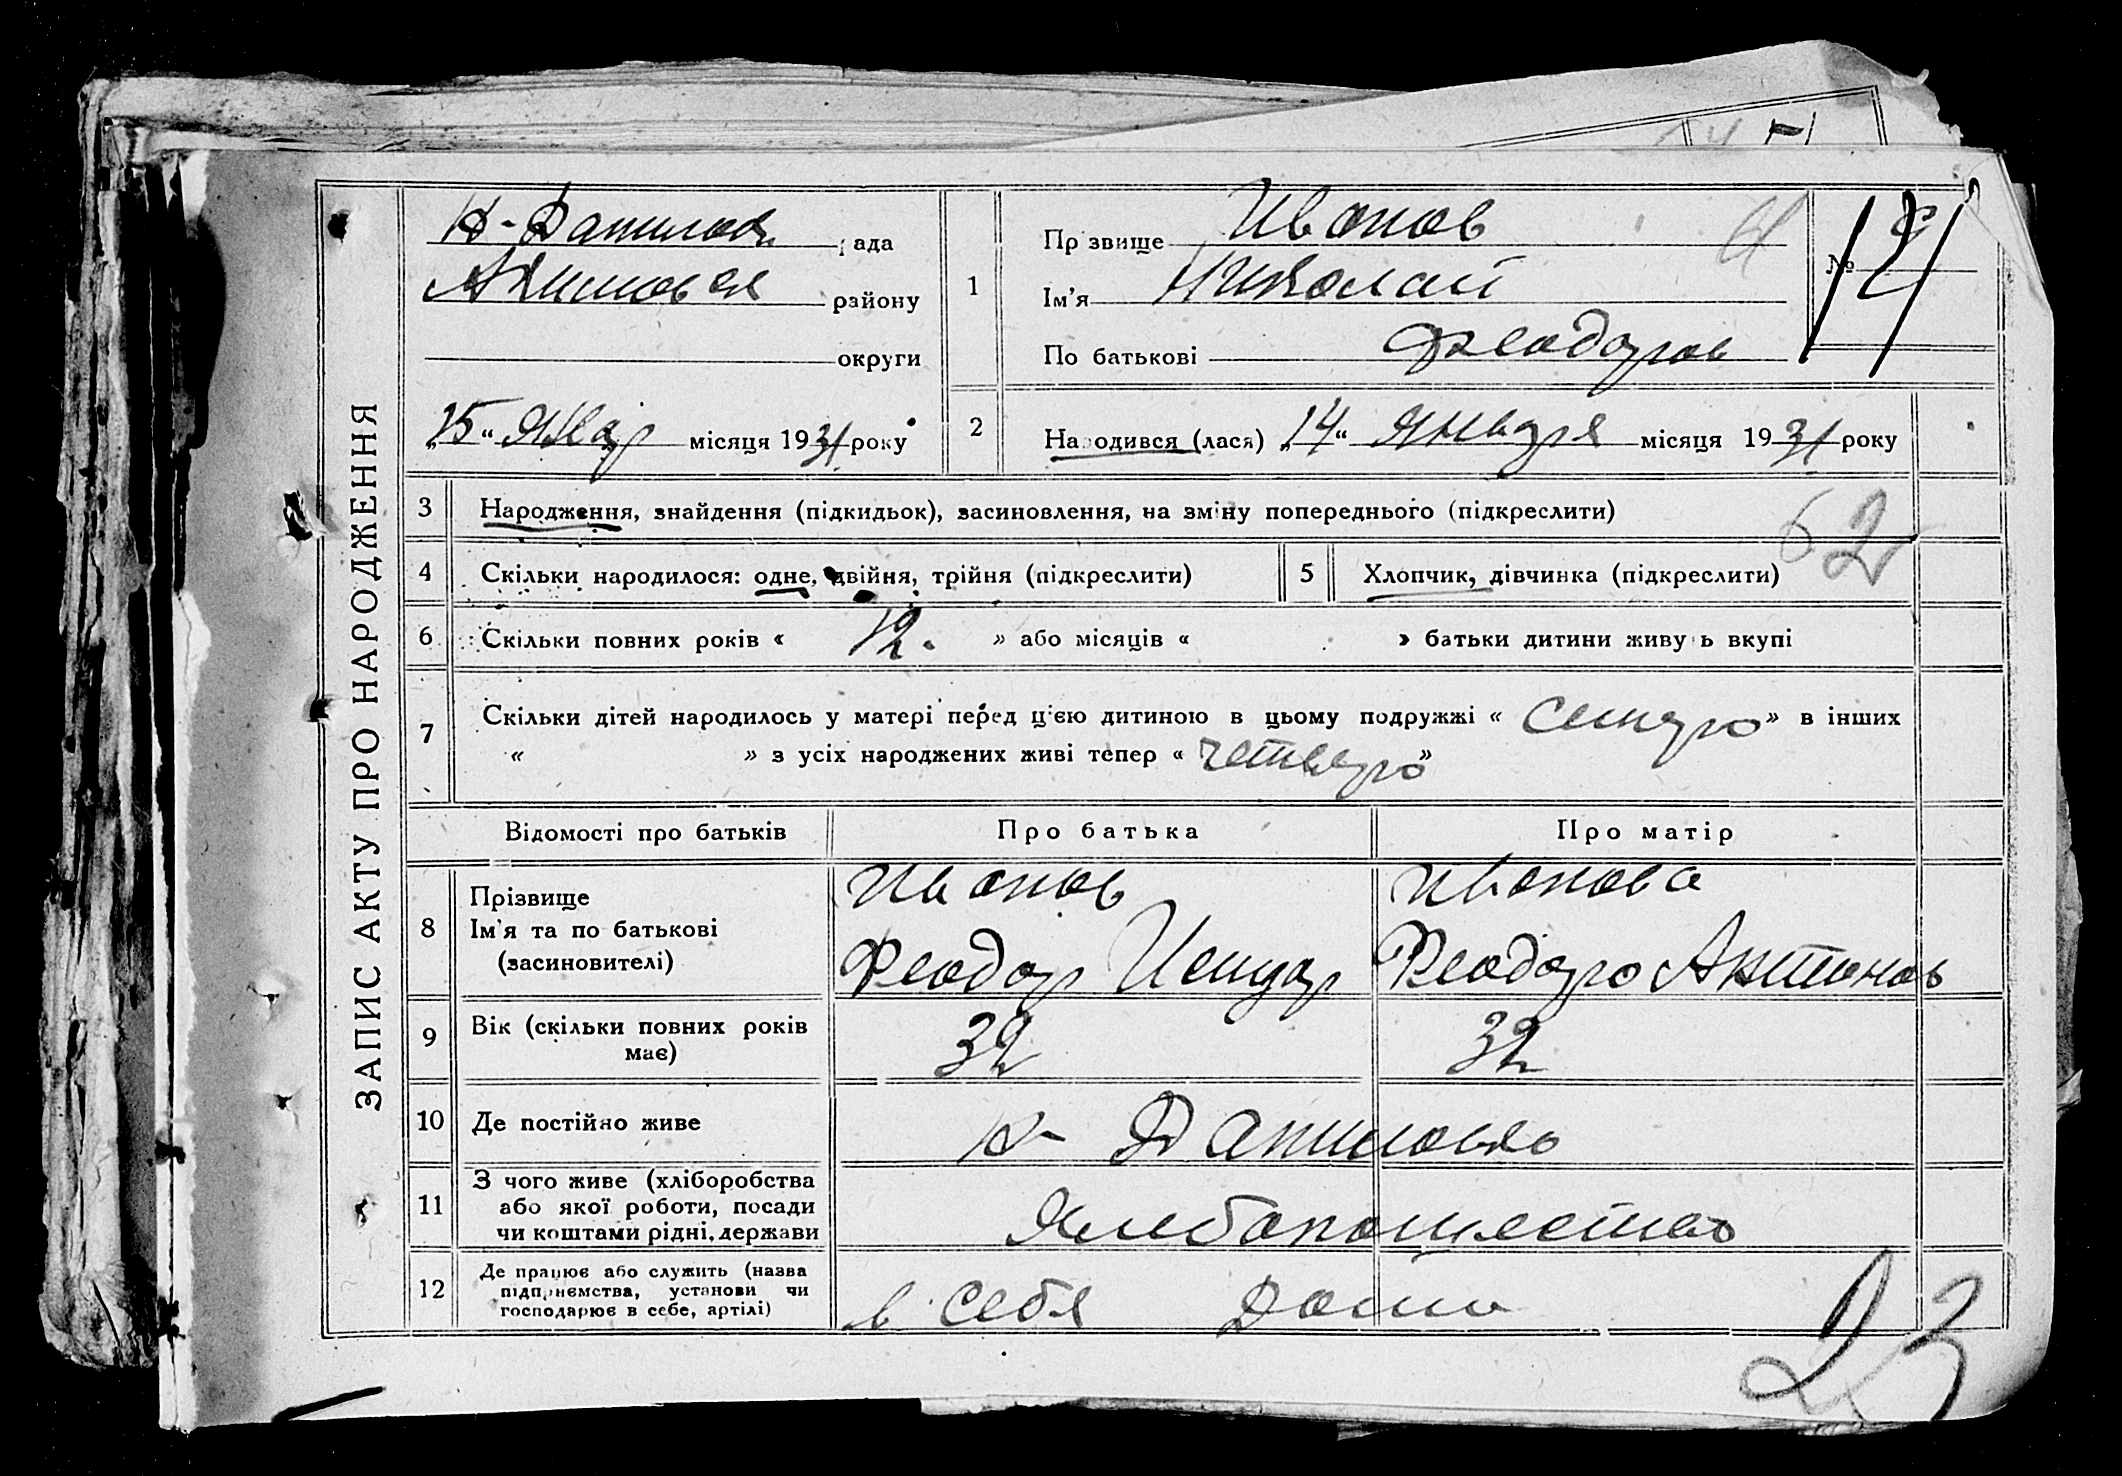 ЗАПИС АКТУ ПРО НАРОДЖЕННЯ
К-Данилов. рада
Акимовся району
округи
„15“ Явар місяця 1931 року
1
Прзвище Иванов
Ім’я Николай
По батькові Феодоров
№
2
Народився (лася) „14“ Января місяця 1931 року
3 Народження, знайдення (підкидьок), засиновлення, на зміну попереднього (підкреслити)
62
4 Скільки народилося: одне, двійня, трійня (підкреслити)
5 Хлопчик, дівчинка (підкреслити)
6 Скільки повних років « 12. » або місяців « » батьки дитини живуть вкупі
7 Скільки дітей народилось у матері перед цією дитиною в цьому подружжі « семеро » в інших
« » з усіх народжених живі тепер « четверо »
Відомості про батьків Про батька Про матір
8 Прізвище
Ім’я та по батькові
(засновителі)
Иванов
Феодор
Иванова
Феодоро Антонов
9 Вік (скільки повних років
має)
32 32
10 Де постійно живе К- Даниловко
11 З чого живе (хліборобства
або якої роботи, посади
чи коштами рідні, держави
Хлебопашество
12 Де працює або служить (назва
підприємства, установи чи
господарює в себе, артілі)
в себя Дома
23